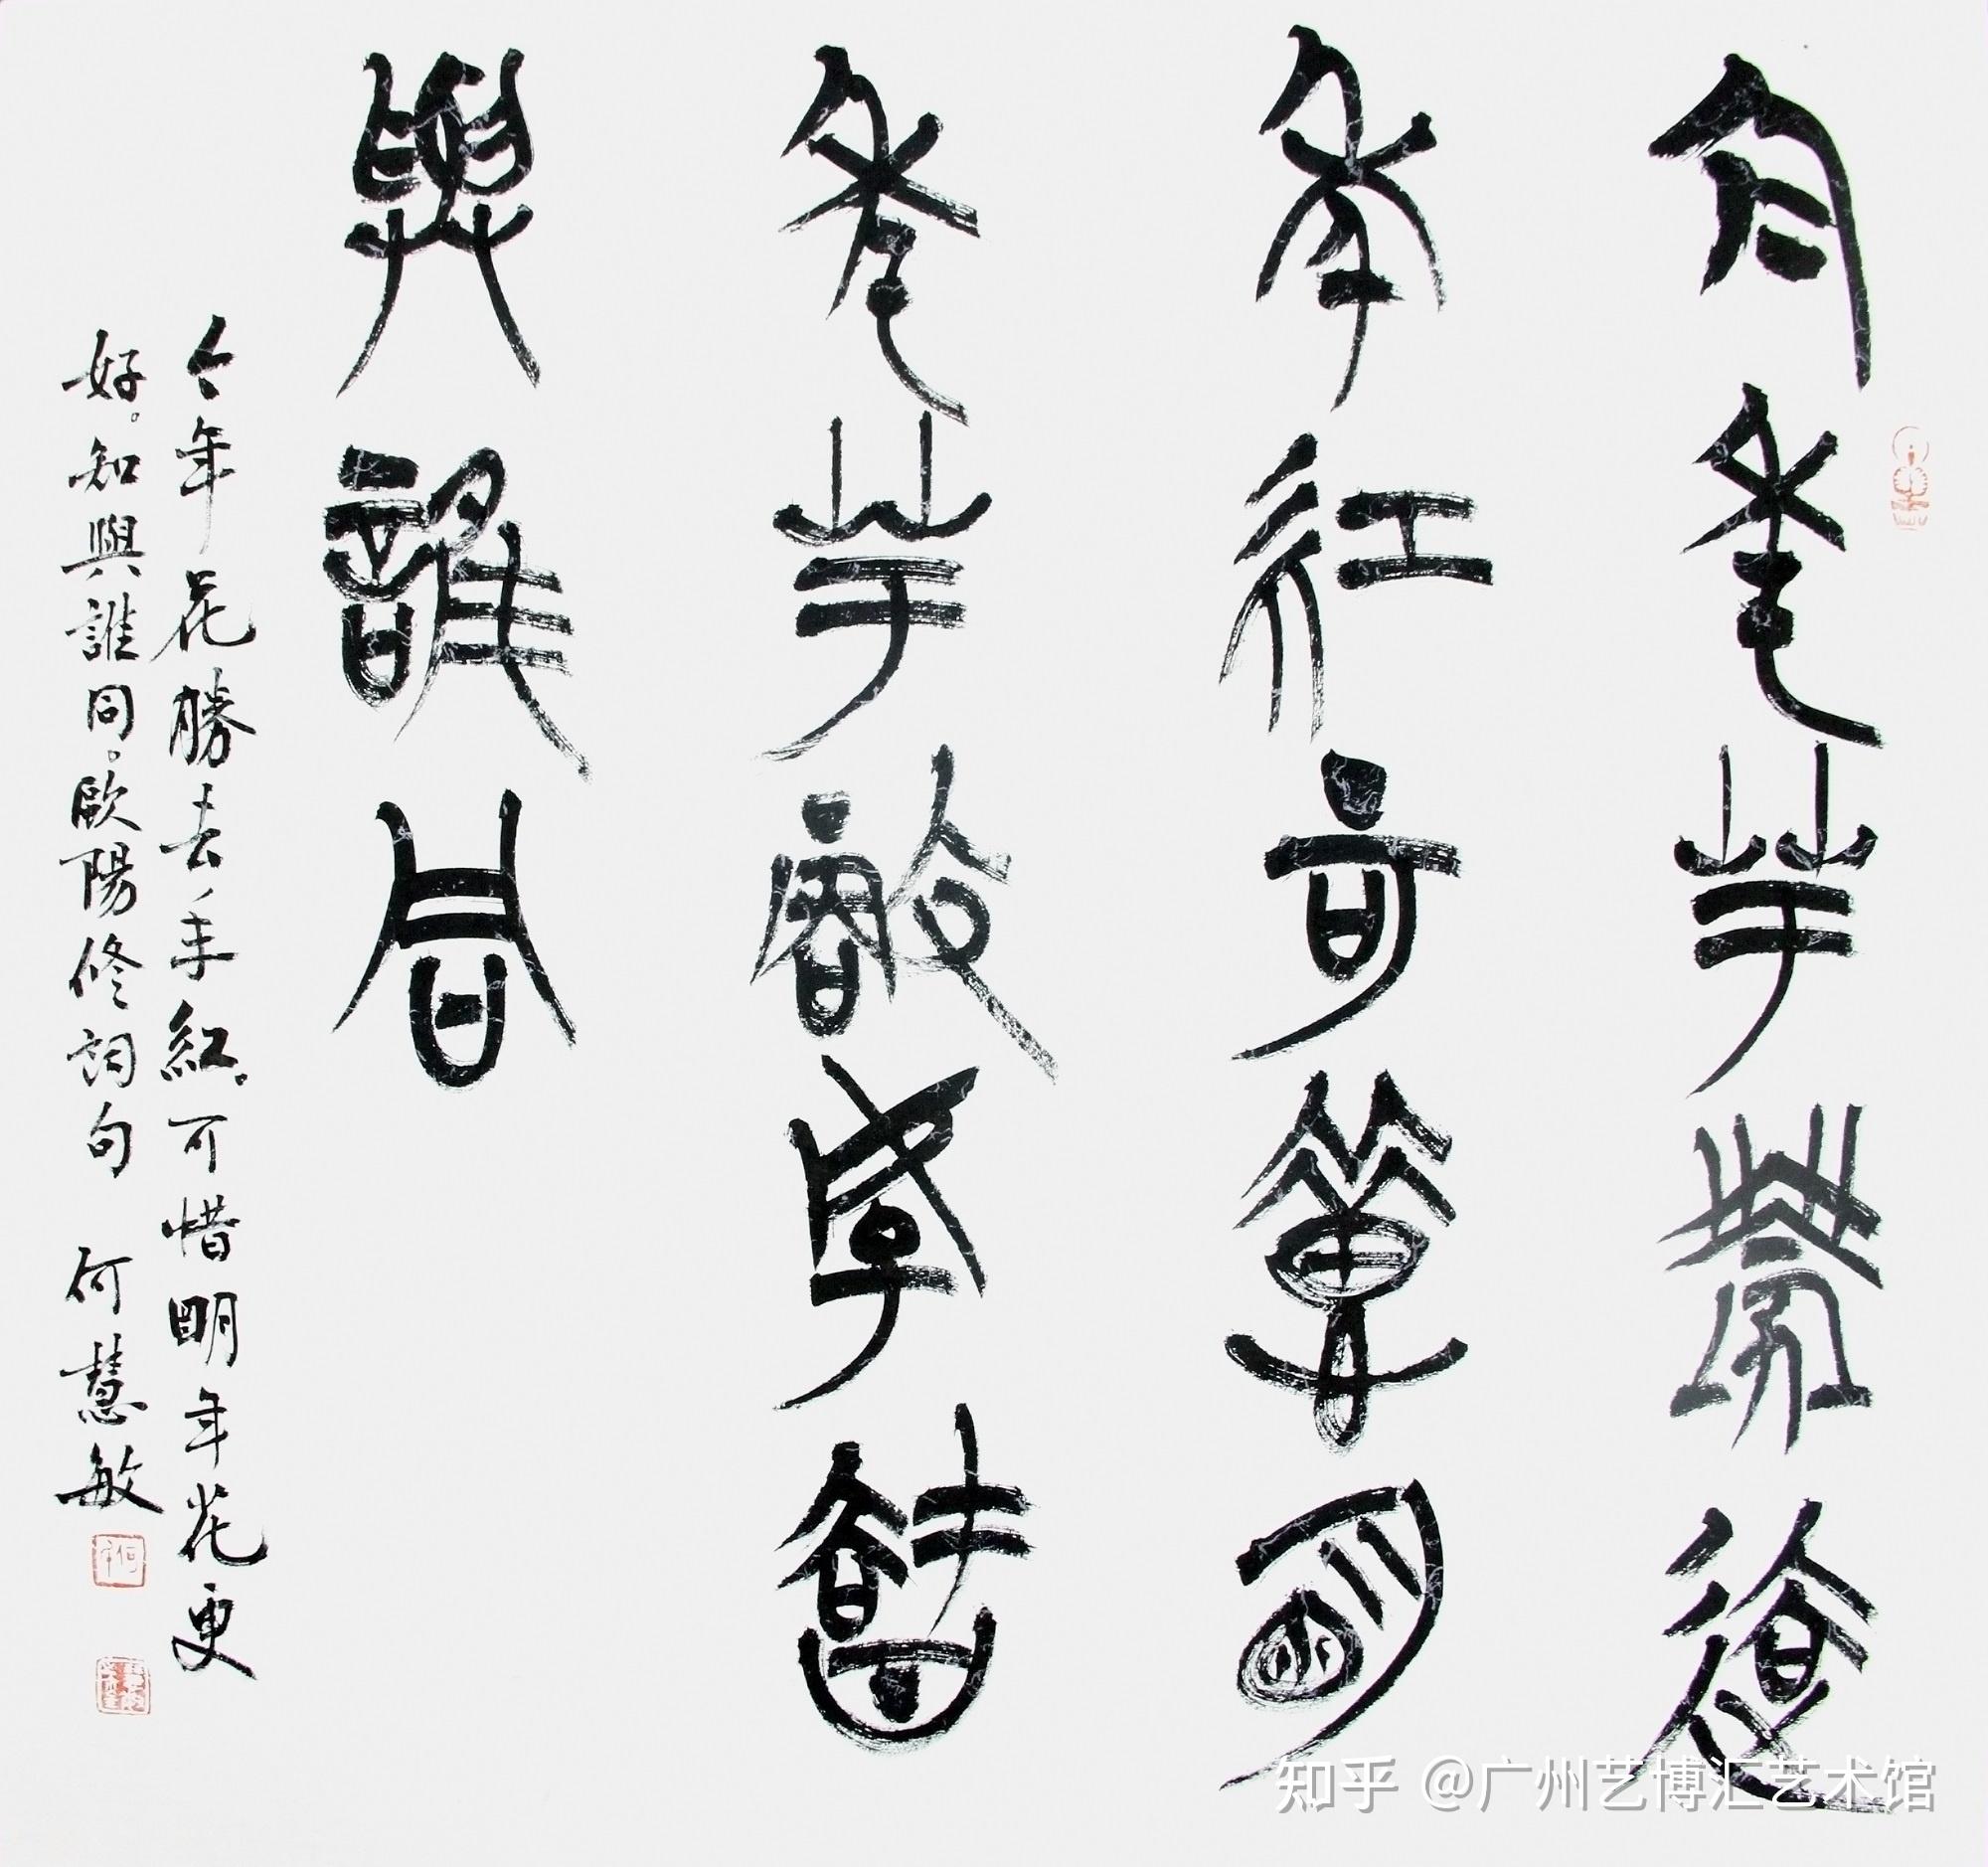 今年花勝去
年紅可惜明
年花更好知
與誰同
今年花勝去年紅。可惜明年花更
好。知與誰同。歐陽修詞句 何慧敏
知乎 @广州艺博汇艺术馆